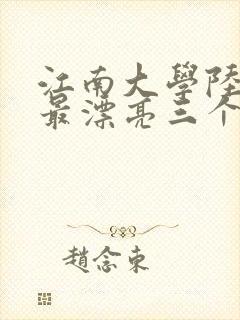 江南大學陸
最漂亮三个
趙念東